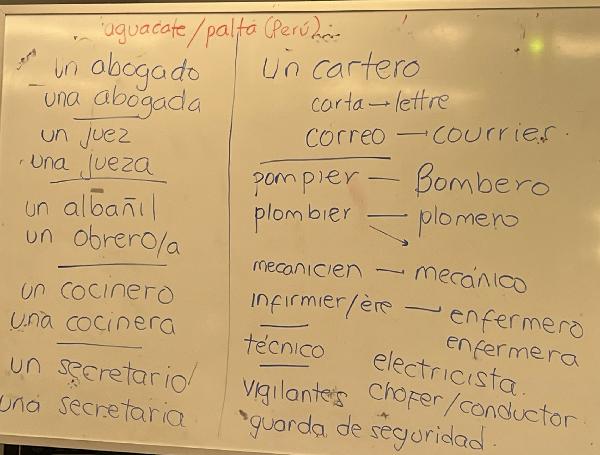 aguacate/palta (Perú)...
un abogado
una abogada
un juez
una jueza
un albañil
un obrero/a
un cocinero
una cocinera
un secretario
una secretaria
un cartero
carta → lettre
correo — courrier.
pompier — Bombero
plombier — plomero
mecanicien — mecánico
infirmier/ère — enfermero
enfermera
técnico
electricista.
vigilantes chofer/conductor
guarda de seguridad.